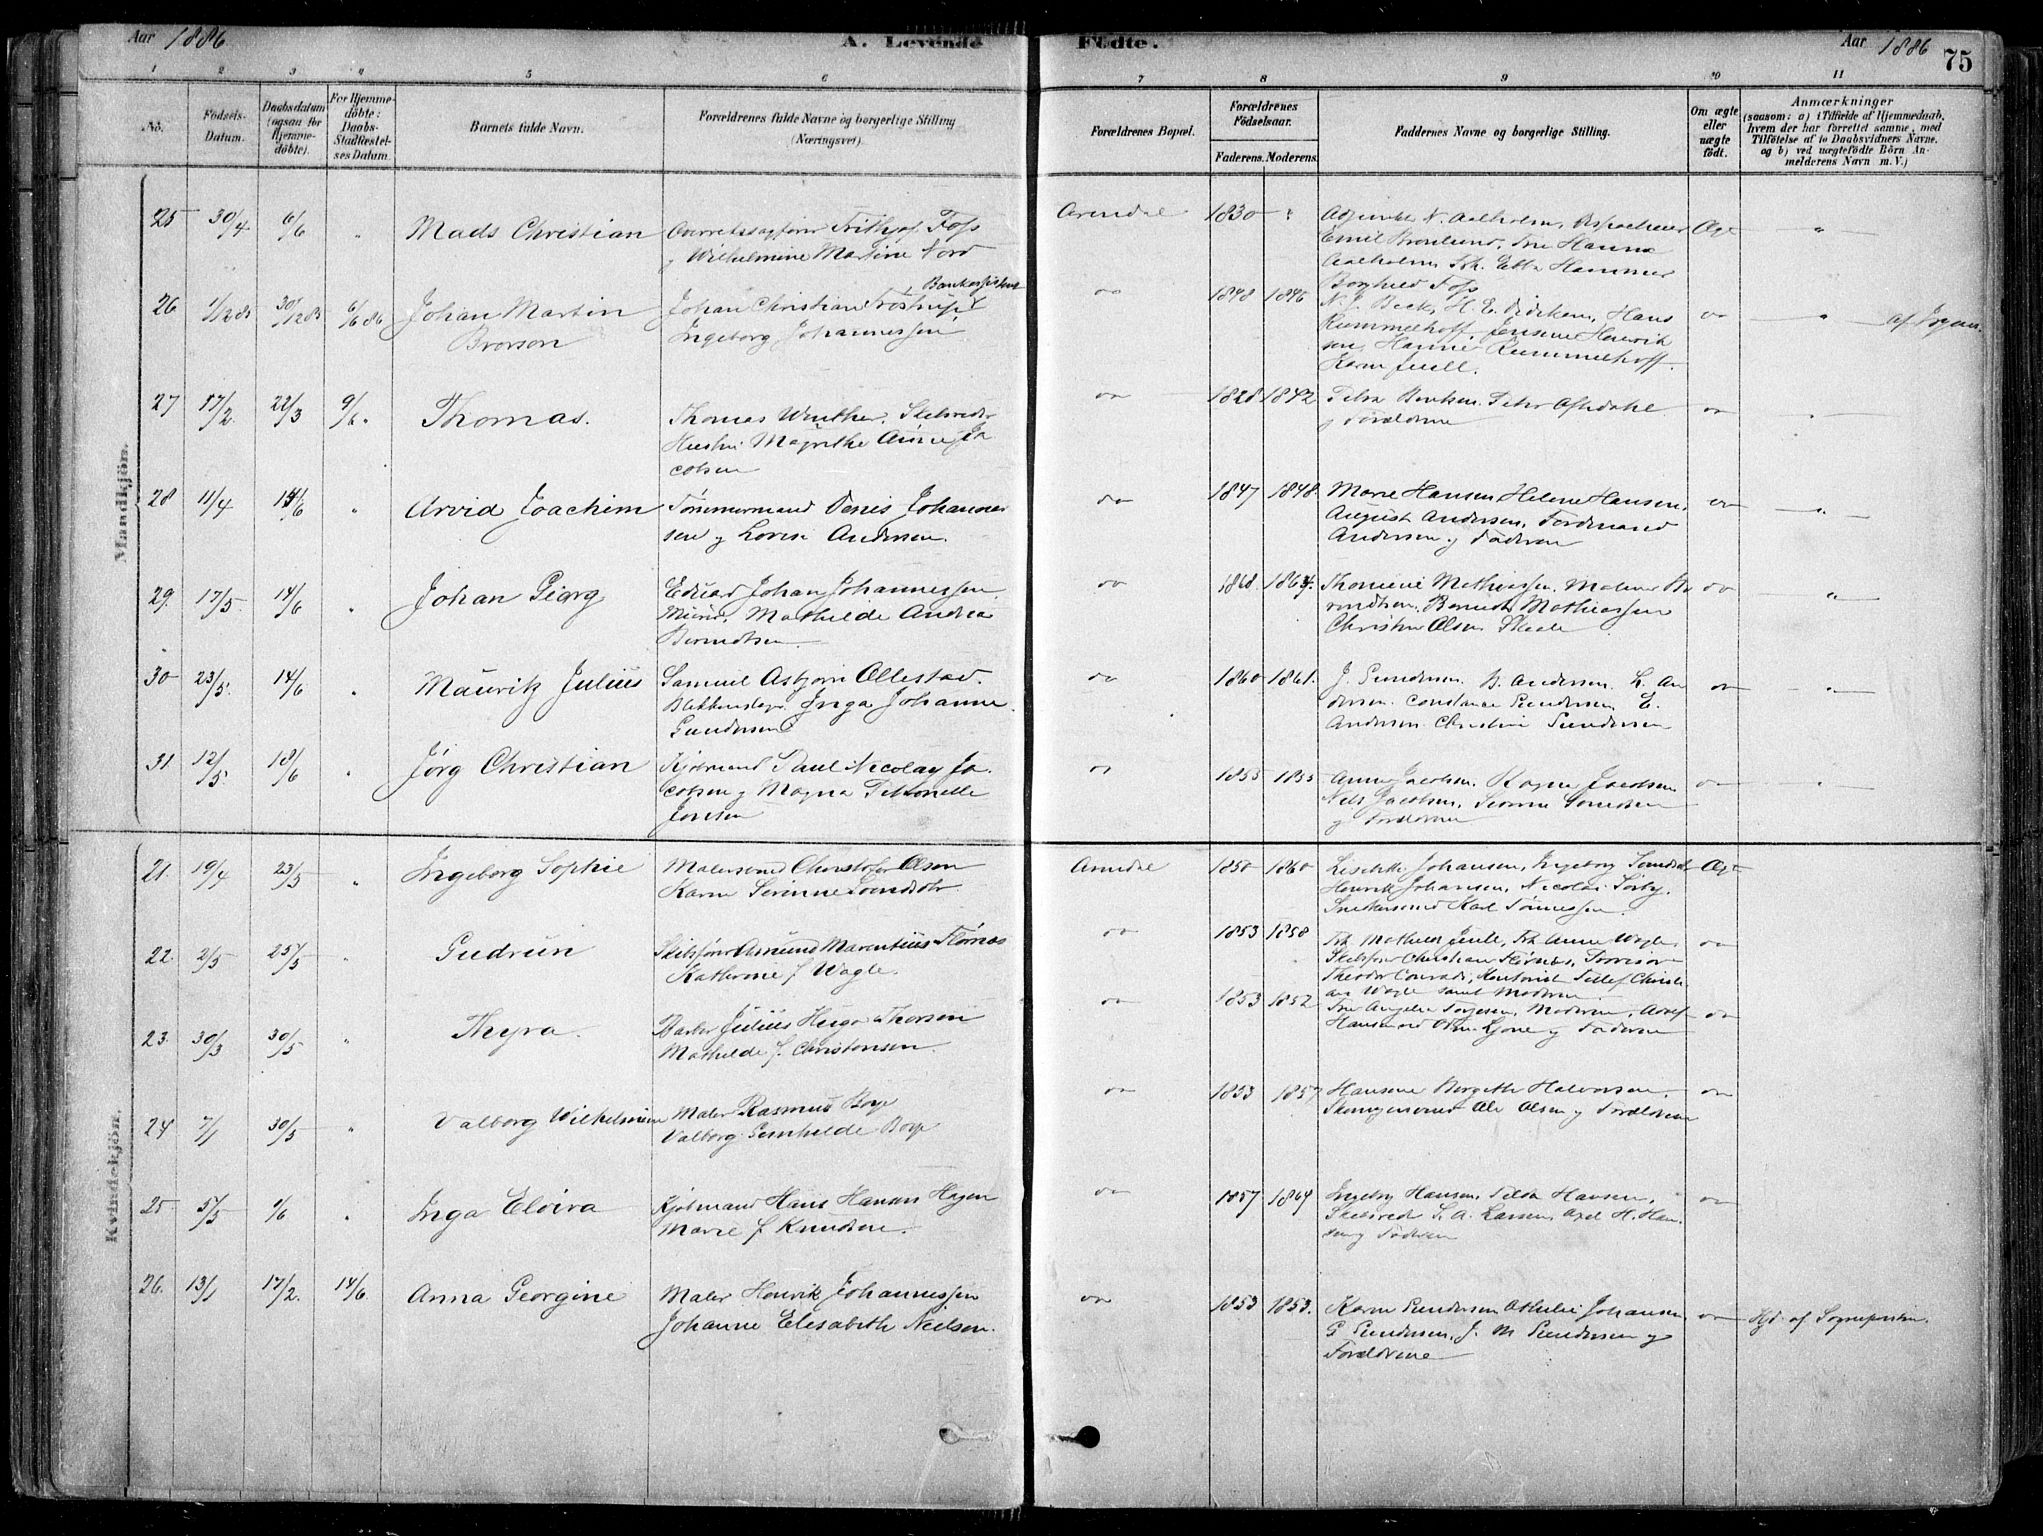 Aar 1886
A. Levende Fødte.
Aar 1886
75
1 2 3 4 5 6 7 8 9 10 11
No.
Fødsels-Datum.
Daabsdatum (ogsaa for Hjemme-døbte).
For Hjemme-døbte: Daabs-Stadfæstel-ses Datum.
Barnets fulde Navn.
Forældrenes fulde Navne og borgerlige Stilling
(Næringsvei)
Forældrenes Bopæl.
Forældrenes Fødselsaar.
Faderens. Moderens.
Faddernes Navne og borgerlige Stilling.
Om ægte eller uægte født.
Anmærkninger
(saasom: a) i Tilfælde af Hjemmedaab,
hvem der har forrettet samme, med
Tilføielse af to Daabsvidners Navne,
og b) ved uægtefødte Børn An-
melderens Navn m. V.)
Mandkjøn.
25 30/4 6/6 " Mads Christian
Overretssagfører Frithjof Foss
og Wilhelmine Martine Nord
Arendal 1830 "
Adjunkt N. Aalholm,
Emil Fru Hanna
Aalholm, Frk. Hammer
Borghild Foss
Ægt "
26 1/12 85 30/12 85 6/6 86 Johan Martin
Brorson
Johan Christian Frostrup
Ingeborg Johannessen
do 1848 1846
N. J. Beck, H. E. Didriksen, Hans
Rummelhoff, Jensine Henrik
sen, Hanne Rummelhoff
Karen Juell.
do " af
27 17/2 22/3 9/6 Thomas.
Thomas Winther, Skibsreder
Hustru Magrethe Anne Ja
cobsen
do 1828 1842
Petra
og Forældrene
do "
28 11/4 14/6 " Arvid Joachim
Tømmermand Denis Johannes
sen og Lovise Andersen.
do 1847 1848
Marie Hansen, Helene Hansen,
August Andersen, Ferdinand
Andersen og Faderen
do "
29 17/5 14/6 " Johan Georg
Eduard Johan Johannessen
Murer, Mathilde Andrea
Berndtsen
do 1868 1864
Mathiassen,
Mathiassen
Christen Olsen
do "
30 23/5 14/6 " Mauritz Julius
Samuel Asbjørn Ollestad.
Inga Johanne
Gundersen
do 1860 1861.
J. Gundersen. B. Andersen. L. An
dersen. Constance Gundersen, E.
Andersen. Christine Gundersen
do "
31 12/5 18/6 " Jørg Christian
Kjøbmand Paul Nicolay Ja
cobsen og Magna Petronelle
Jensen
do 1855 1855
Anna Jacobsen, Ragna Jacobsen
Nils Jacobsen,
og Forældrene
do "
Kvindekjøn.
21. 19/4 23/5 " Ingeborg Sophie
Malersvend Christofer Olsen
Karen Serinne
Arendal 1850 1860
Lisebeth Johansen, Ingeborg
Henrik Johansen, Nicolai
Snekkersvend Karl Tønnessen.
Ægt
22. 2/5 25/5 " Gudrun
Skibsfører Asmund Marentius Flørnæs
Kathrine f. Wagle.
do 1853 1858
Frk Mathilde Juell, Frk Anna Wagle,
Skibsfører Christian Flørnæs, Provisor
Theodor Conradi, Kontorist Detlef Christi
an Wagle samt Moderen.
do
23. 30/3 30/5 " Thyra.
Barber Julius Hugo Thorsen
Mathilde f. Christensen.
do 1853 1852
Fru Angelie Moderen, Adolf
Hansen og Faderen
do
24 7/1 30/5 " Valborg Wilhelmine
Maler Rasmus Boye
Valborg Gunhilde Boye
do 1853 1857
Hansine Bergethe Halvorsen,
Ole Olsen og Forældrene
do
25 5/5 1/6 " Inga Elvira
Kjøbmand Hans Hansen Hagen
Marie f Knudsen.
do 1857 1864
Ingeborg Hansen, Tilda Hansen,
Skibsreder S. A. Larsen, Axel H. Han
sen og Faderen
do
26. 13/1 17/2. 14/6 Anna Georgine
Maler Henrik Johannessen
Johanne Elisabeth Nielsen.
do 1853 1853.
Karen Gundersen, Johansen
G Gundersen, J. M. Gundersen og
Forældrene
do Hjd. af Sognepresten.